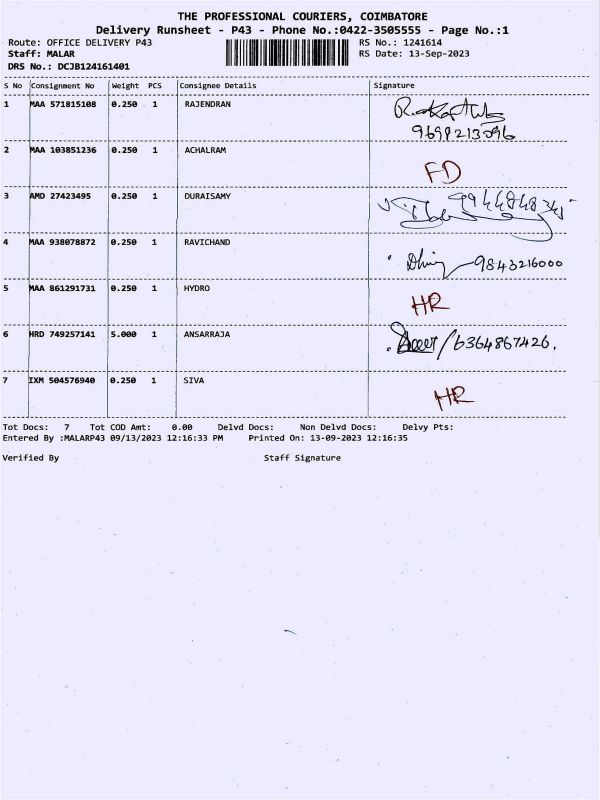 THE PROFESSIONAL COURIERS, COIMBATORE
Delivery Runsheet - P43 - Phone No.:0422-3505555 - Page No.:1
Route: OFFICE DELIVERY P43 RS No.: 1241614
Staff: MALAR RS Date: 13-Sep-2023
DRS No.: DCJB124161401
S No Consignment No Weight PCS Consignee Details Signature
1 MAA 571815108 0.250 1 RAJENDRAN
9698213096
2 MAA 103851236 0.250 1 ACHALRAM
FD
3 AMD 27423495 0.250 1 DURAISAMY
4 MAA 938078872 0.250 1 RAVICHAND
9843216000
5 MAA 861291731 0.250 1 HYDRO
HR
6 HRD 749257141 5.000 1 ANSARRAJA
/6364867426.
7 IXM 504576940 0.250 1 SIVA
HR
Tot Docs: 7 Tot COD Amt: 0.00 Delvd Docs: Non Delvd Docs: Delvy Pts:
Entered By :MALARP43 09/13/2023 12:16:33 PM Printed On: 13-09-2023 12:16:35
Verified By Staff Signature